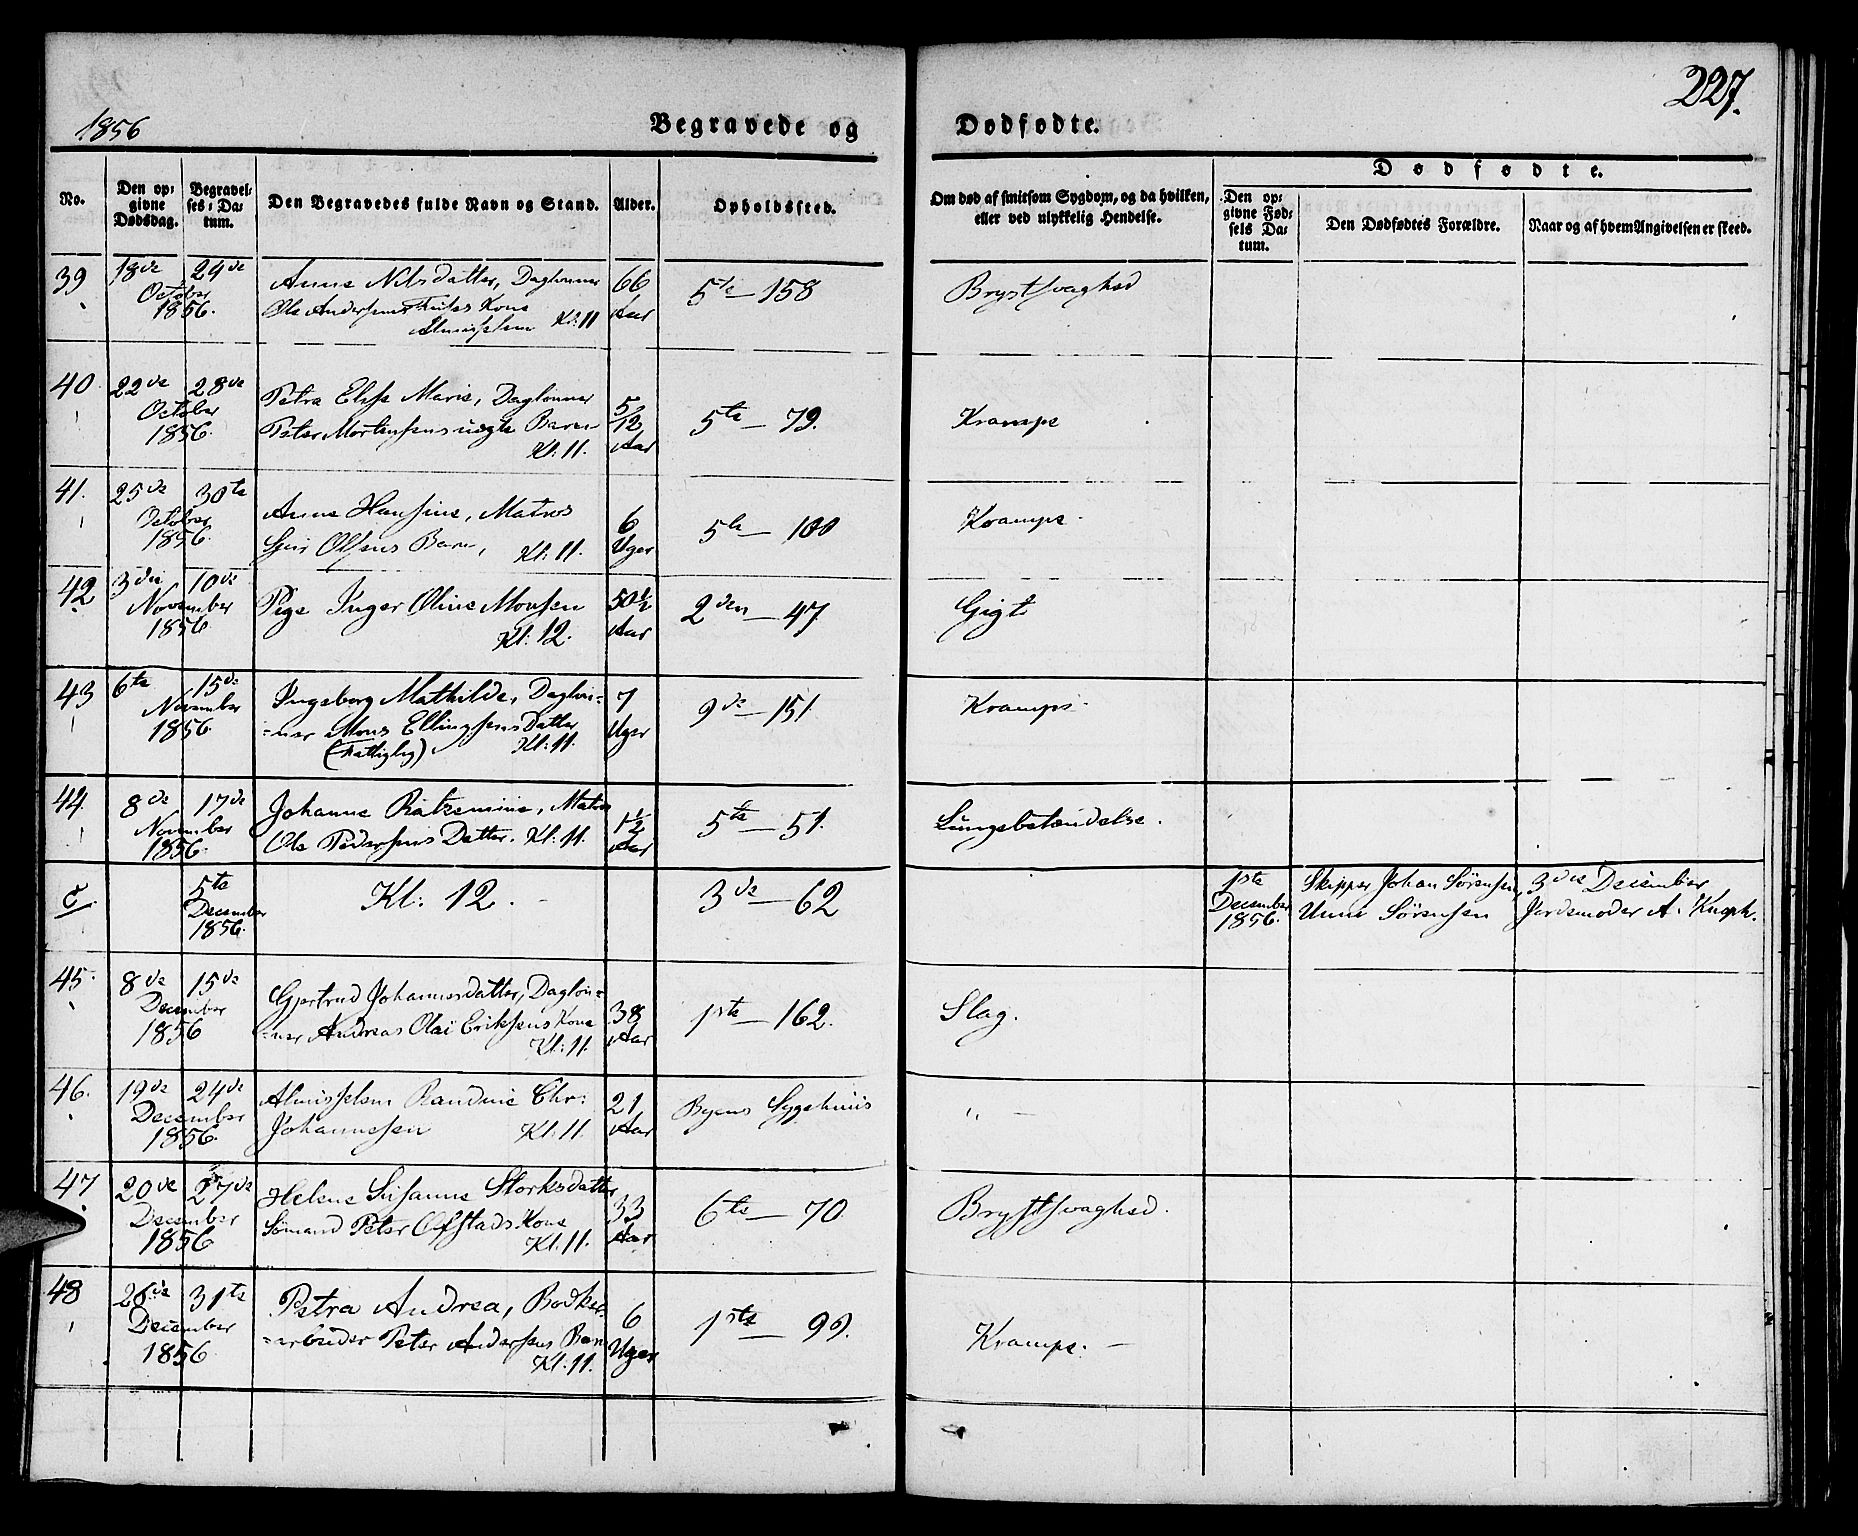 1856
Begravede og Dødfødte.
227.
No.
Den opgivne Dødsdag.
Begravelses-Datum.
Den Begravedes fulde Navn og Stand.
Alder.
Opholdssted.
Om død af smitsom Sygdom, og da hvilken,
eller ved ulykkelig Hendelse.
Dødfødte.
Den opgivne Fødsels Datum.
Den Dødfødtes Forældre.
Naar og af hvem Angivelsen er skeed.
39 18de 24de Anne Nilsdatter, Daglønner 66 5te — 158 Brystsvaghed
October Ole Andersens Kone Aar
1856. Almisselem Kl: 11
40. 22de 28de Petra Elise Marie, Daglønner 5/12 5te — 79. Krampe
October Peter Mortensens uægte Barn Aar
1856. Kl. 11.
41. 25de 30te Anne Hansine, Matros 6 5te — 100 Krampe
October Olsens Barn, Kl: 11. Uger
1856.
42 3die 10de Pige Inger Oline Monsen 50 1/2 2den — 47 Gigt
November Kl: 12. Aar
1856
43 6te 15de Ingeborg Mathilde, Dagløn= 7 9de — 151 Krampe
November =ner Mons Ellingsens Datter Uger
1856. Kl: 11.
44. 8de 17de Johanne Matros 1 1/2 5te — 51. Lungebetændelse.
November Ole Pedersens Datter. Kl: 11. Aar
1856.
c. 5te Kl: 12. 3de — 62 1ste Skipper Johan Sørensen, 3die December
December December Sørensen Jordemoder A.
1856. 1856.
45. 8de 15de Gjertrud Johannesdatter, Dagløn= 38 1ste — 162. Slag.
December =ner Andreas Olai Eriksens Kone Aar
1856 Kl: 11.
46. 19de 24de Almisselem Randine Chr: 21 Byens Sygehuus " —
December Johannesen Kl: 11. Aar
1856.
47 20de 27de Helene Susanne Storksdatter 33 6te — 70. Brystsvaghed.
December Sømand Peter Ofstads Kone Aar
1856 Kl: 11.
48 26de 31te Petra Andrea, Bødker= 6 1ste — 99. Krampe. —
December =arbeider Peter Andersens Barn Uger
1856 Kl. 11.